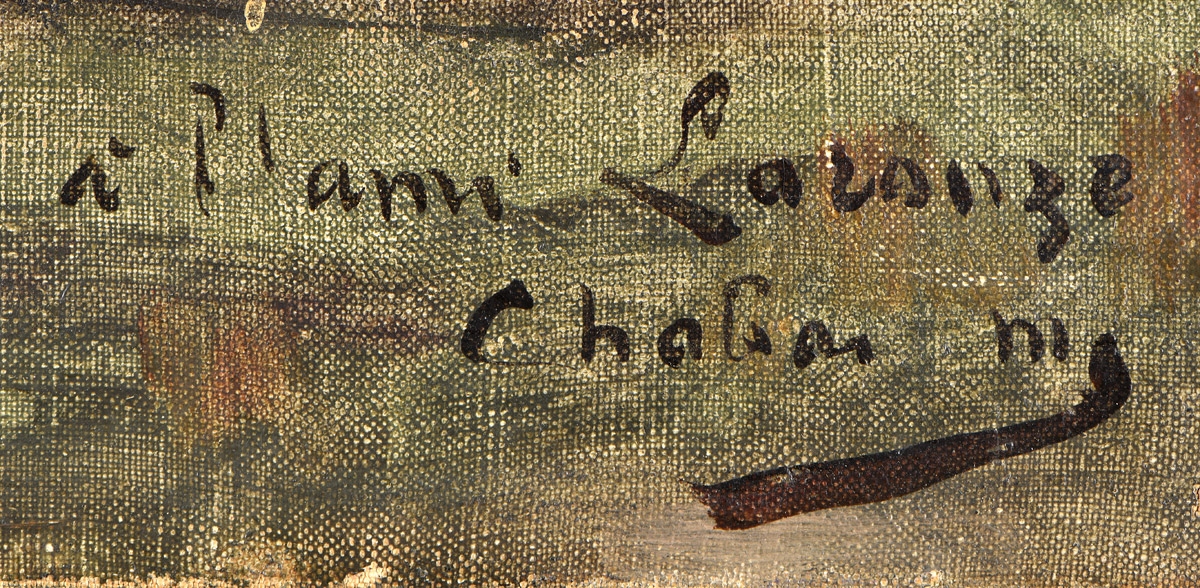 à l'ami Laronze
Chabanm